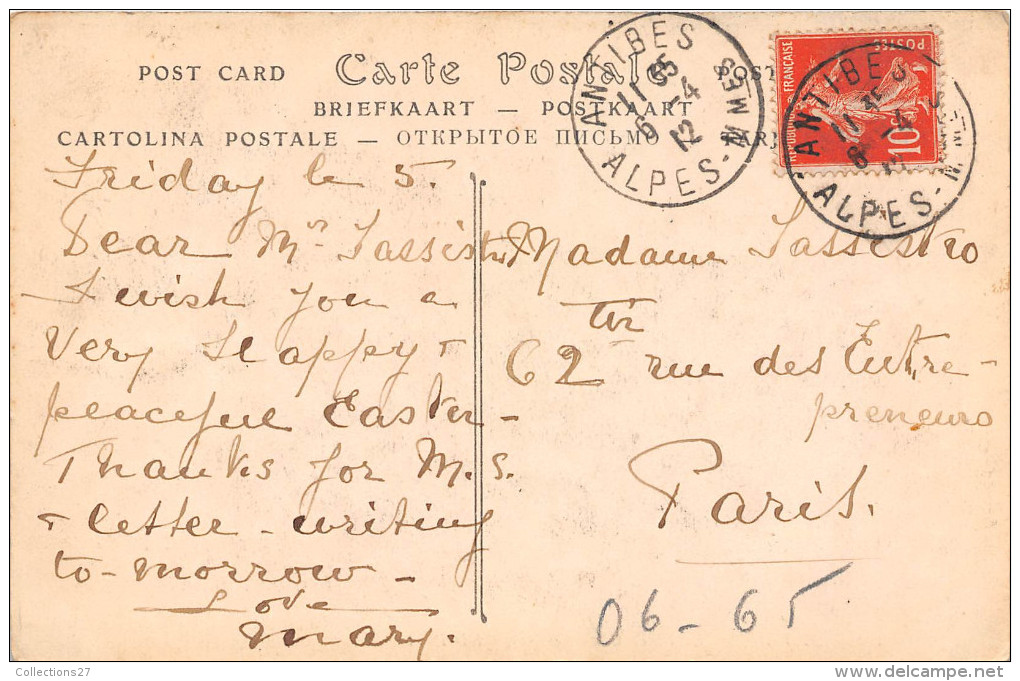 POST CARD Carte Postale POST
BRIEFKAART — POSTKAART
CARTOLINA POSTALE — ОТКРЫТОЕ ПИСЬМО
ANTIBES
11 35
6 -4
12
ALPES-MMES
POSTES
REPUBLIQUE FRANÇAISE
10c
ANTIBES
11 35
ALPES-M
Friday le 5.
Dear Mrs
I wish you a
Very Happy +
peaceful Easter -
Thanks for M.S.
+ letter - writing
to-morrow -
Love
Mary.
Madame Sassistro
62 rue des Entre-
preneurs
Paris.
06 - 65
Collections27
www.delcampe.net